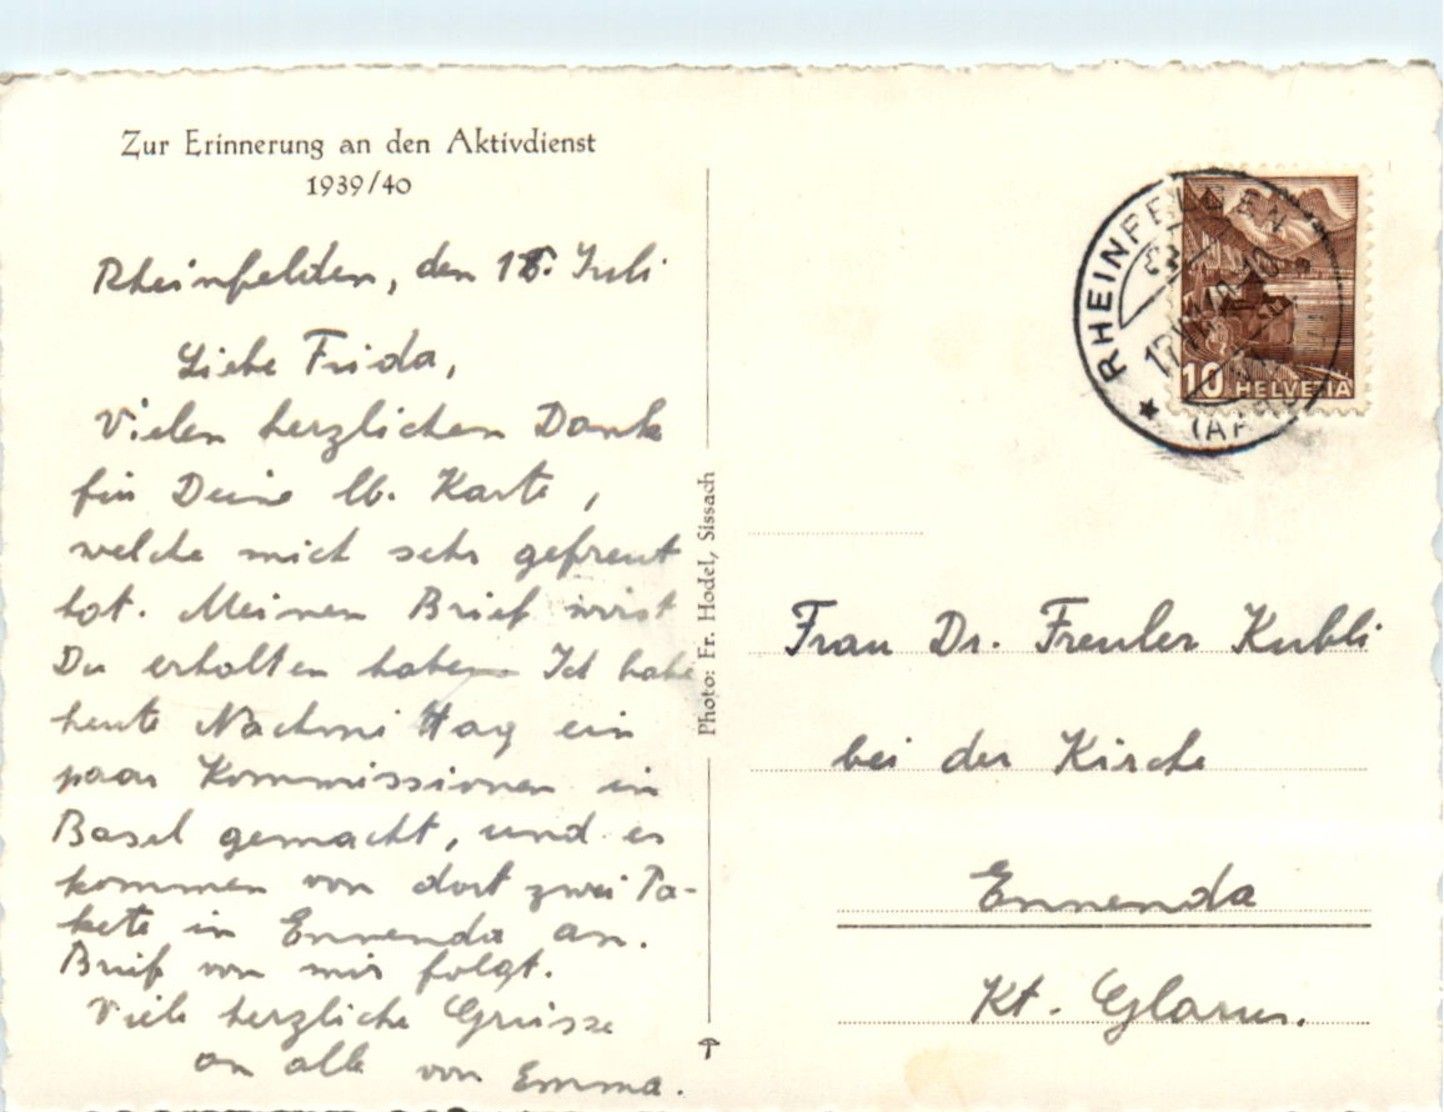 Zur Erinnerung an den Aktivdienst
1939/40
Rheinfelden, den 16. Juli
Liebe Frida,
Vielen herzlichen Dank
für Deine lb. Karte,
welche mich sehr gefreut
hat. Meinen Brief wirst
Du erhalten haben Ich habe
heute Nachmittag ein
paar Kommissionen in
Basel gemacht, und es
kommen von dort zwei Pa-
kete in Ennenda an.
Brief von mir folgt.
Viele herzliche Grüsse
an alle von Emma.
Photo: Fr. Hodel, Sissach
RHEINFELDEN
10 HELVETIA
Frau Dr. Freuler Kubli
bei der Kirche
Ennenda
Kt. Glarus.